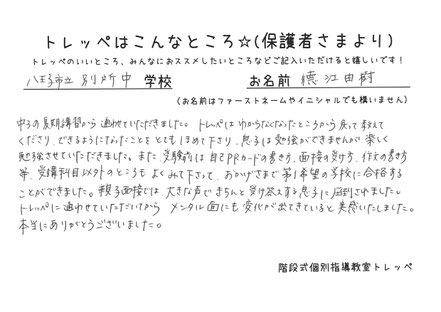 トレッペはこんなところ☆(保護者さまより)
トレッペのいいところ、みんなにおススメしたいところなどご記入いただけると嬉しいです!
八王子市立 別所中 学校 お名前 徳江由樹
(お名前はファーストネームやイニシャルでも構いません)
中3の夏期講習から通わせていただきました。トレッペはわからなくなったところから戻って教えて
くださり、できるようになったことをとてもほめて下さり、息子は勉強ができませんが楽しく
勉強させていただきました。また、受験前は自己PRカードの書き方、面接の受け方、作文の書き方
等、受講科目以外のところもよくみて下さって、おかげさまで第1希望の学校に合格する
ことができました。親子面接では、大きな声できちんと受け答えする息子に圧倒されました。
トレッペに通わせていただいてから メンタル面にも変化が出てきていると実感いたしました。
本当にありがとうございました。
階段式個別指導教室トレッペ